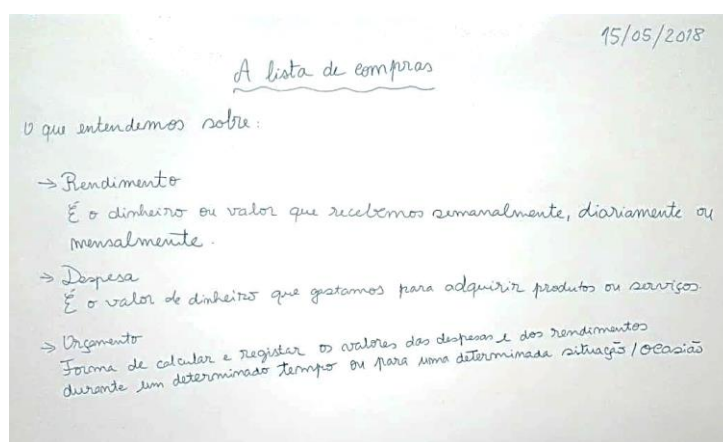 15/05/2018
A lista de compras
O que entendemos sobre:
→ Rendimento
É o dinheiro ou valor que recebemos semanalmente, diariamente ou
mensalmente.
→ Despesa
É o valor de dinheiro que gastamos para adquirir produtos ou serviços.
→ Orçamento
Forma de calcular e registar os valores das despesas e dos rendimentos
durante um determinado tempo ou para uma determinada situação / ocasião